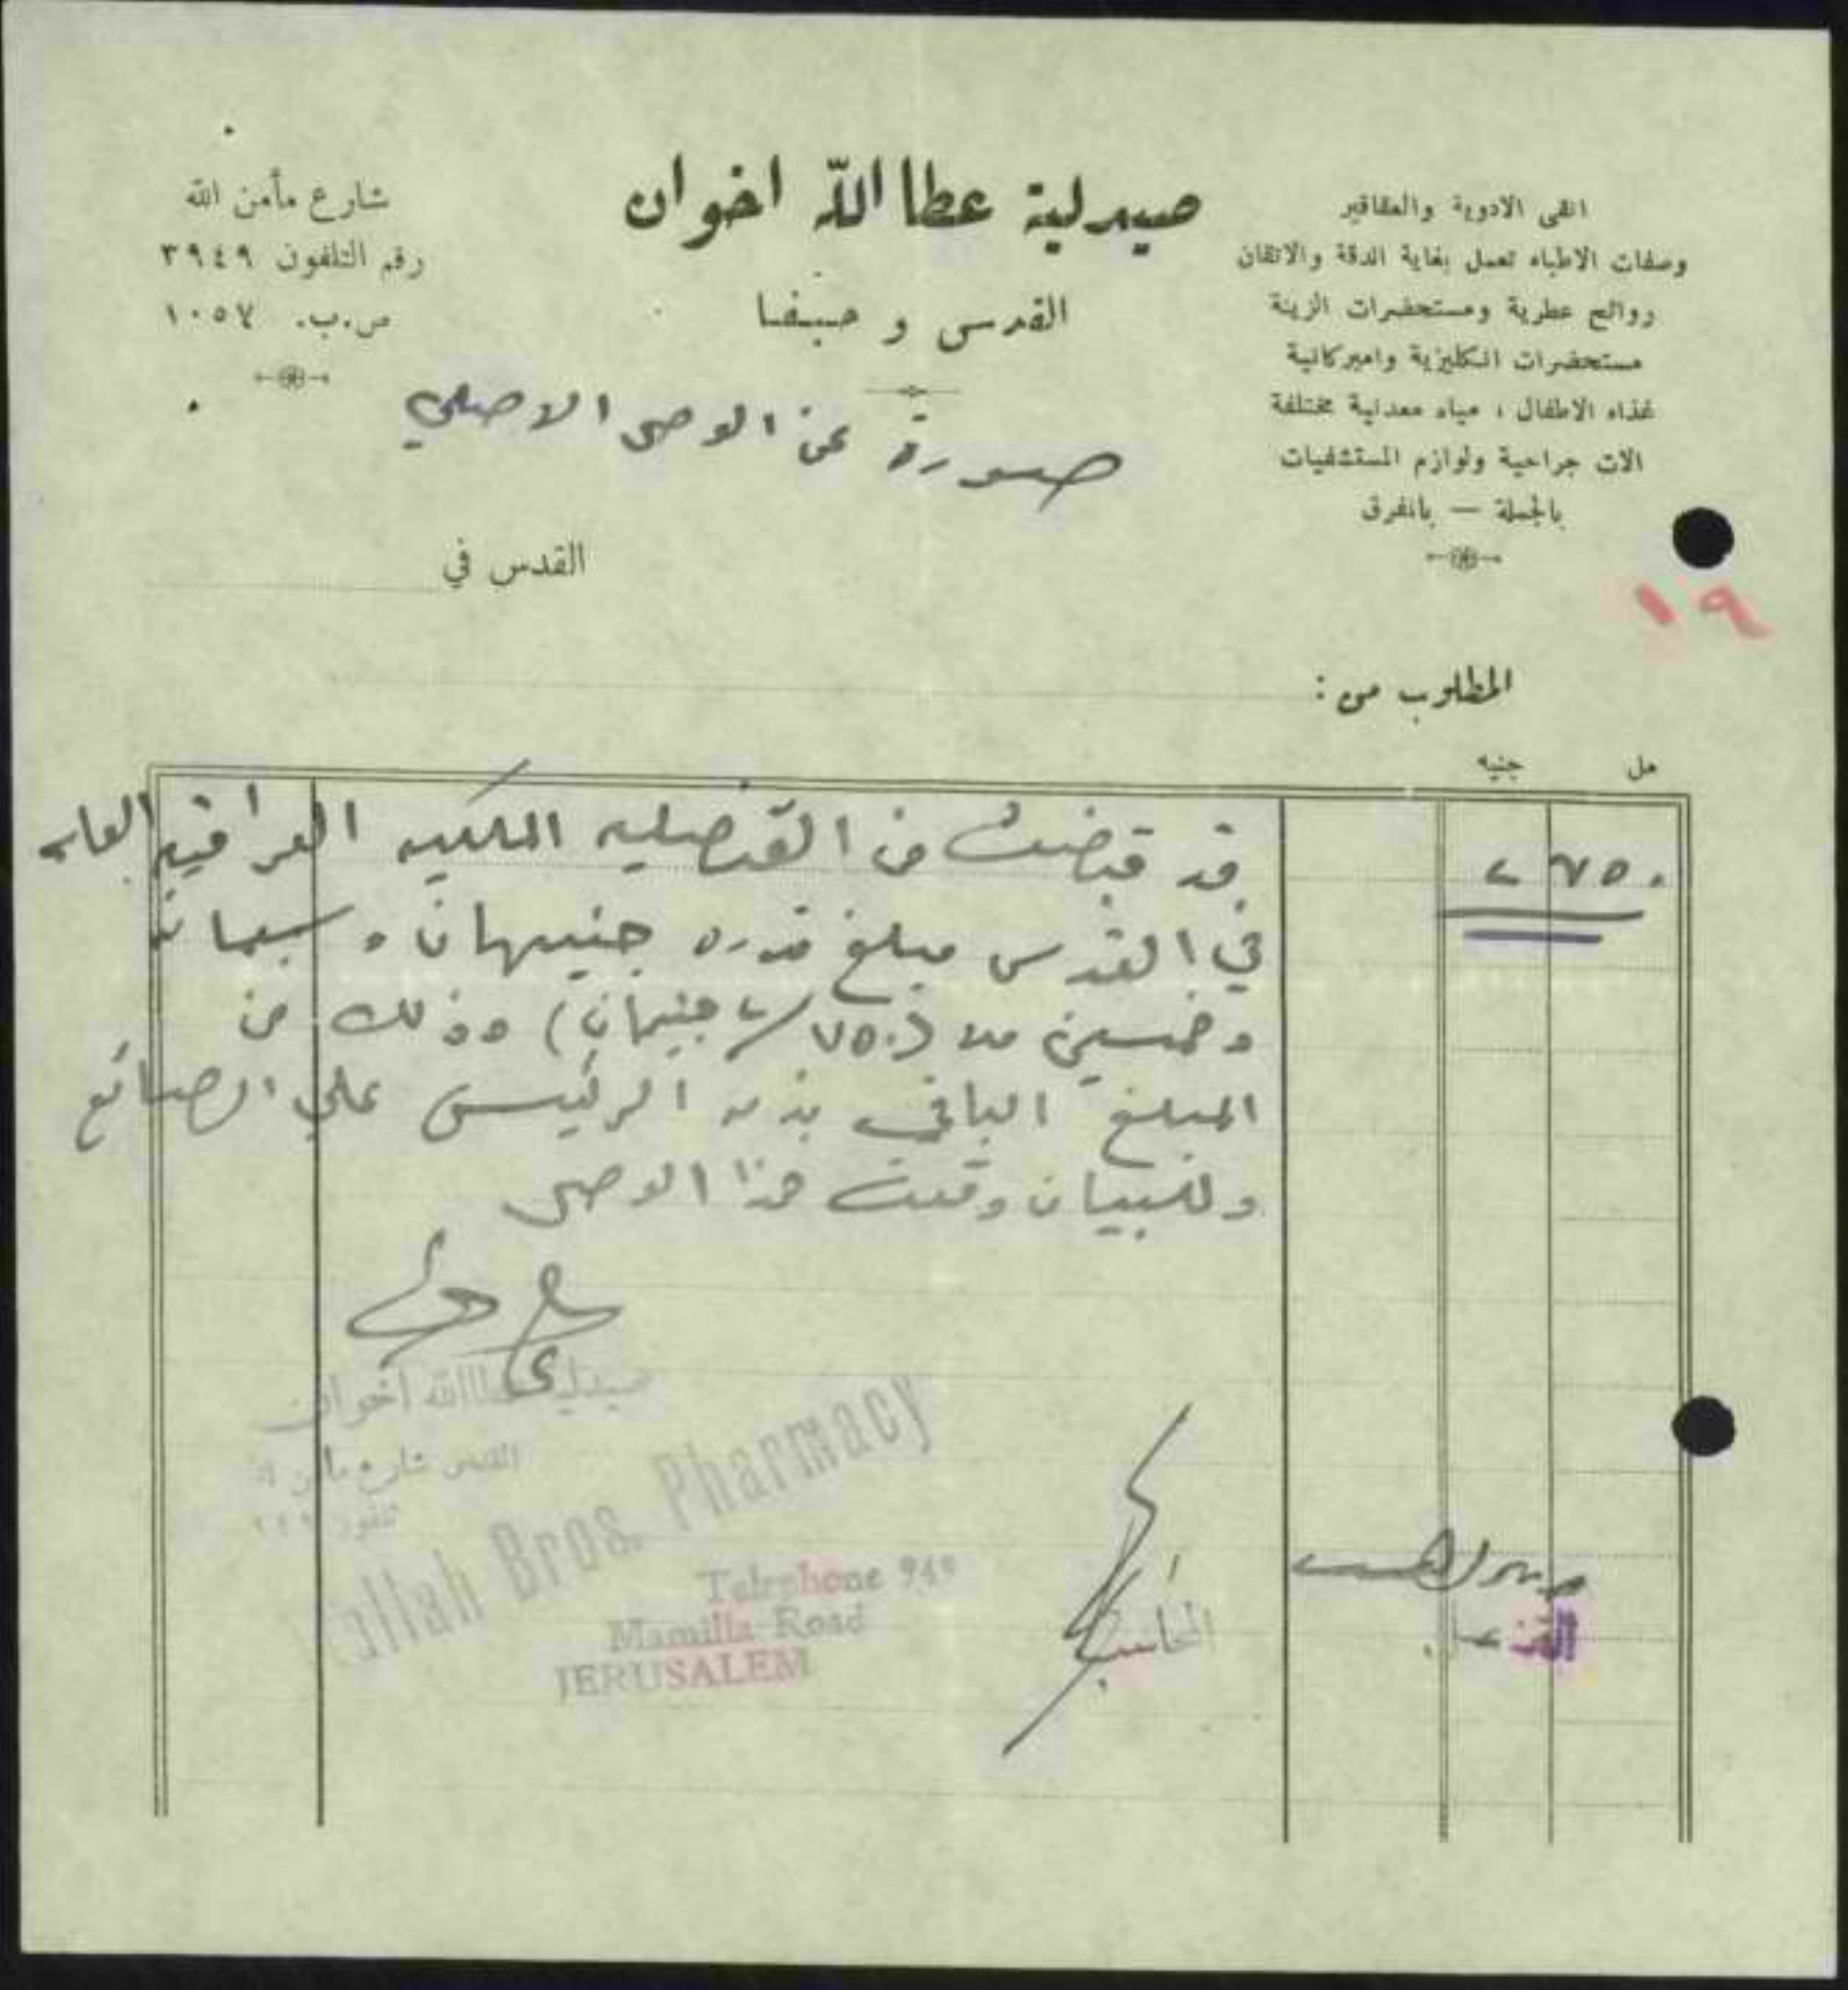 انقى الادوية والعقاقير
وصفات الاطباء تعمل بغاية الدقة والاتقان
روائح عطرية ومستحضرات الزينة
مستحضرات انكليزية واميركانية
غذاء الاطفال ، مياه معدنية مختلفة
الات جراحية ولوازم المستشفيات
بالجملة — بالمفرق
صيدلية عطا الله اخوان
القدس و حيفا
شارع مأمن الله
رقم التلفون ٣٩٤٩
ص.ب. ١٠٥٧
صورة عن الوصل الاصلي
القدس في
١٩
المطلوب من :
مل جنيه
٢ ٧٥٠
قد قبضت من القنصليه الملكيه العراقيه العامه
في القدس مبلغ قدره جنيهان وسبعمائة
وخمسين ملا (٢/٧٥٠ جنيهان) وذلك من
المبلغ الباقي بذمة الرئيس علي الصائغ
وللبيان وقعت هذا الوصل
صيدلية عطاالله اخوان
القدس شارع مأمن الله
تلفون
allah Bros. Pharmacy
Telephone 949
Mamilla Road
JERUSALEM
المحاسب
القنصل